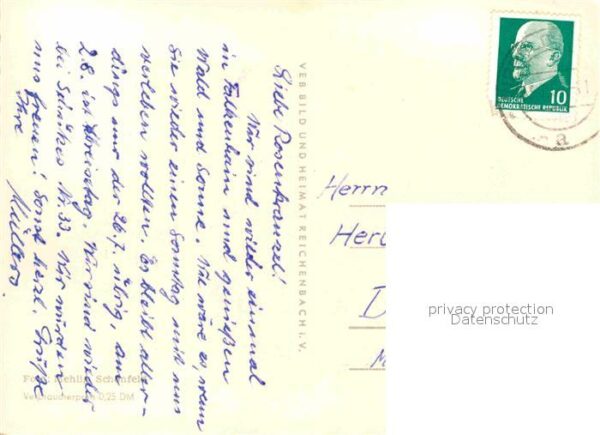 Liebe Rosenkranzel!
Wir sind wieder einmal
in Falkenhain und genießen
Wald und Sonne. Wie wäre es, wenn
Sie wieder einen Sonntag mit uns
verleben wollten. Es bleibt aller-
dings nur der 26.7. übrig, am
2.8. ist Abreisetag. Wir sind wieder
bei Schützes Nr. 33. Wir würden
uns freuen! Sonst herzl. Grüße
Ihre
Müllers.
VEB BILD UND HEIMAT REICHENBACH i. V.
Schönfeld
Verbraucherpreis 0,25 DM
10
DEUTSCHE
DEMOKRATISCHE REPUBLIK
a
Herrn
Her
D
privacy protection
Datenschutz